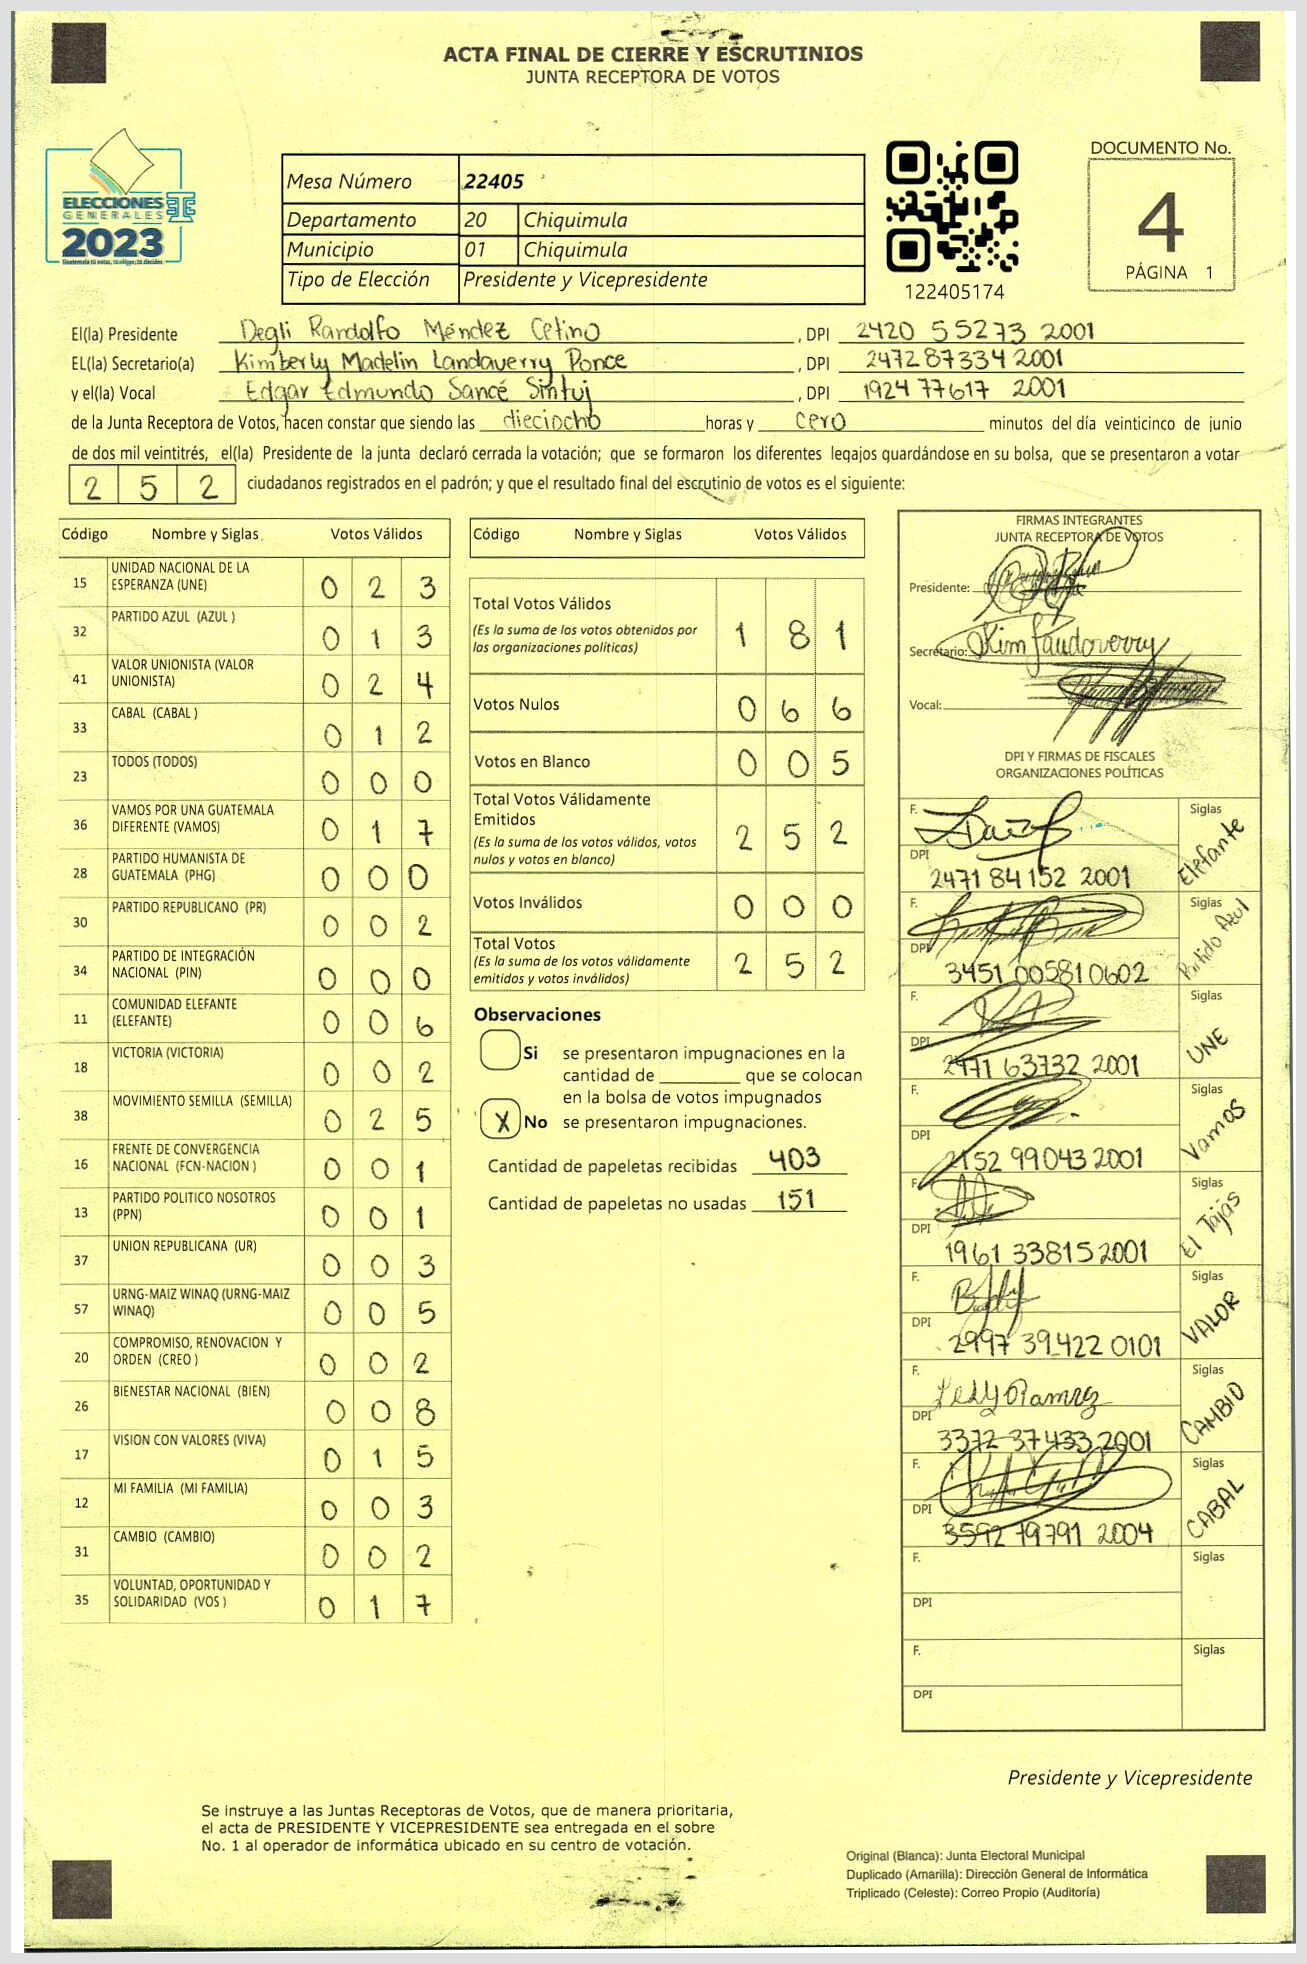 ACTA FINAL DE CIERRE Y ESCRUTINIOS
JUNTA RECEPTORA DE VOTOS
ELECCIONES
GENERALES
2023
Mesa Número 22405
Departamento 20 Chiquimula
Municipio 01 Chiquimula
Tipo de Elección Presidente y Vicepresidente
122405174
DOCUMENTO No.
4
PÁGINA 1
El(la) Presidente Degli Randolfo Méndez Cetino, DPI 2420 55273 2001
EL(la) Secretario(a) Kimberly Madelin Landaverry Ponce, DPI 2472 87334 2001
y el(la) Vocal Edgar Edmundo Sancé Sintuj, DPI 1924 77617 2001
de la Junta Receptora de Votos, hacen constar que siendo las dieciocho horas y cero minutos del día veinticinco de junio
de dos mil veintitrés, el(la) Presidente de la junta declaró cerrada la votación; que se formaron los diferentes legajos guardándose en su bolsa, que se presentaron a votar
2 5 2 ciudadanos registrados en el padrón; y que el resultado final del escrutinio de votos es el siguiente:
Código Nombre y Siglas Votos Válidos
15 UNIDAD NACIONAL DE LA ESPERANZA (UNE) 0 2 3
32 PARTIDO AZUL (AZUL ) 0 1 3
41 VALOR UNIONISTA (VALOR UNIONISTA) 0 2 4
33 CABAL (CABAL ) 0 1 2
23 TODOS (TODOS) 0 0 0
36 VAMOS POR UNA GUATEMALA DIFERENTE (VAMOS) 0 1 7
28 PARTIDO HUMANISTA DE GUATEMALA (PHG) 0 0 0
30 PARTIDO REPUBLICANO (PR) 0 0 2
34 PARTIDO DE INTEGRACIÓN NACIONAL (PIN) 0 0 0
11 COMUNIDAD ELEFANTE (ELEFANTE) 0 0 6
18 VICTORIA (VICTORIA) 0 0 2
38 MOVIMIENTO SEMILLA (SEMILLA) 0 2 5
16 FRENTE DE CONVERGENCIA NACIONAL (FCN-NACION ) 0 0 1
13 PARTIDO POLITICO NOSOTROS (PPN) 0 0 1
37 UNION REPUBLICANA (UR) 0 0 3
57 URNG-MAIZ WINAQ (URNG-MAIZ WINAQ) 0 0 5
20 COMPROMISO, RENOVACION Y ORDEN (CREO ) 0 0 2
26 BIENESTAR NACIONAL (BIEN) 0 0 8
17 VISION CON VALORES (VIVA) 0 1 5
12 MI FAMILIA (MI FAMILIA) 0 0 3
31 CAMBIO (CAMBIO) 0 0 2
35 VOLUNTAD, OPORTUNIDAD Y SOLIDARIDAD (VOS ) 0 1 7
Código Nombre y Siglas Votos Válidos
Total Votos Válidos 1 8 1
(Es la suma de los votos obtenidos por
las organizaciones políticas)
Votos Nulos 0 6 6
Votos en Blanco 0 0 5
Total Votos Válidamente
Emitidos 2 5 2
(Es la suma de los votos válidos, votos
nulos y votos en blanco)
Votos Inválidos 0 0 0
Total Votos 2 5 2
(Es la suma de los votos válidamente
emitidos y votos inválidos)
Observaciones
Si se presentaron impugnaciones en la
cantidad de ________ que se colocan
en la bolsa de votos impugnados
X No se presentaron impugnaciones.
Cantidad de papeletas recibidas 403
Cantidad de papeletas no usadas 151
FIRMAS INTEGRANTES
JUNTA RECEPTORA DE VOTOS
Presidente:
Secretario: Kim Landaverry
Vocal:
DPI Y FIRMAS DE FISCALES
ORGANIZACIONES POLÍTICAS
F. Siglas Elefante
DPI 2471 84 152 2001
F. Siglas Partido Azul
DPI 3451 00581 0602
F. Siglas UNE
DPI 2471 63732 2001
F. Siglas Vamos
DPI 2152 99043 2001
F. Siglas
DPI 1961 33815 2001
F. Siglas VALOR
DPI 2997 39422 0101
F. Siglas CAMBIO
DPI 3372 37433 2001
F. Siglas CABAL
DPI 3592 79791 2004
F. Siglas
DPI
F. Siglas
DPI
Presidente y Vicepresidente
Se instruye a las Juntas Receptoras de Votos, que de manera prioritaria,
el acta de PRESIDENTE Y VICEPRESIDENTE sea entregada en el sobre
No. 1 al operador de informática ubicado en su centro de votación.
Original (Blanca): Junta Electoral Municipal
Duplicado (Amarilla): Dirección General de Informática
Triplicado (Celeste): Correo Propio (Auditoría)